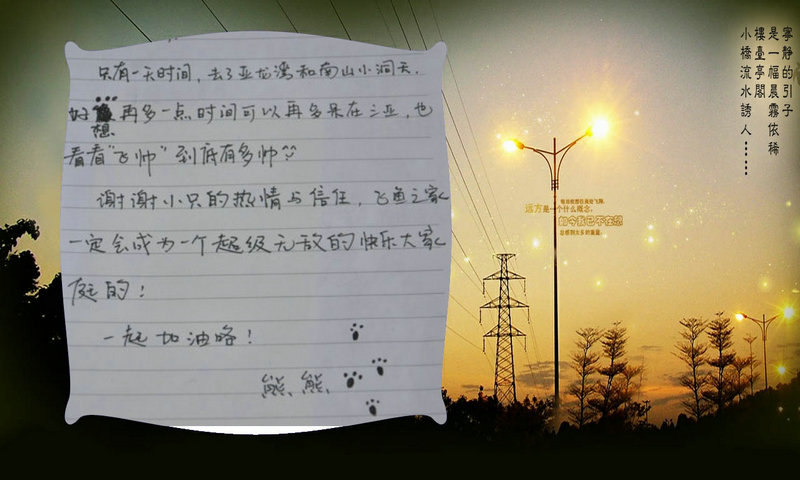 只有一天时间，去了亚龙湾和南山小洞天.
好想再多一点时间可以再多呆在三亚，也
看看"飞帅"到底有多帅
谢谢小只的热情与信任，飞鱼之家
一定会成为一个超级无敌的快乐大家
庭的！
一起加油咯！
熊、熊、
寧靜的引子
是一幅晨霧依稀
樓臺亭閣
小橋流水誘人……
远方是一个什么概念,
如今我已不在想